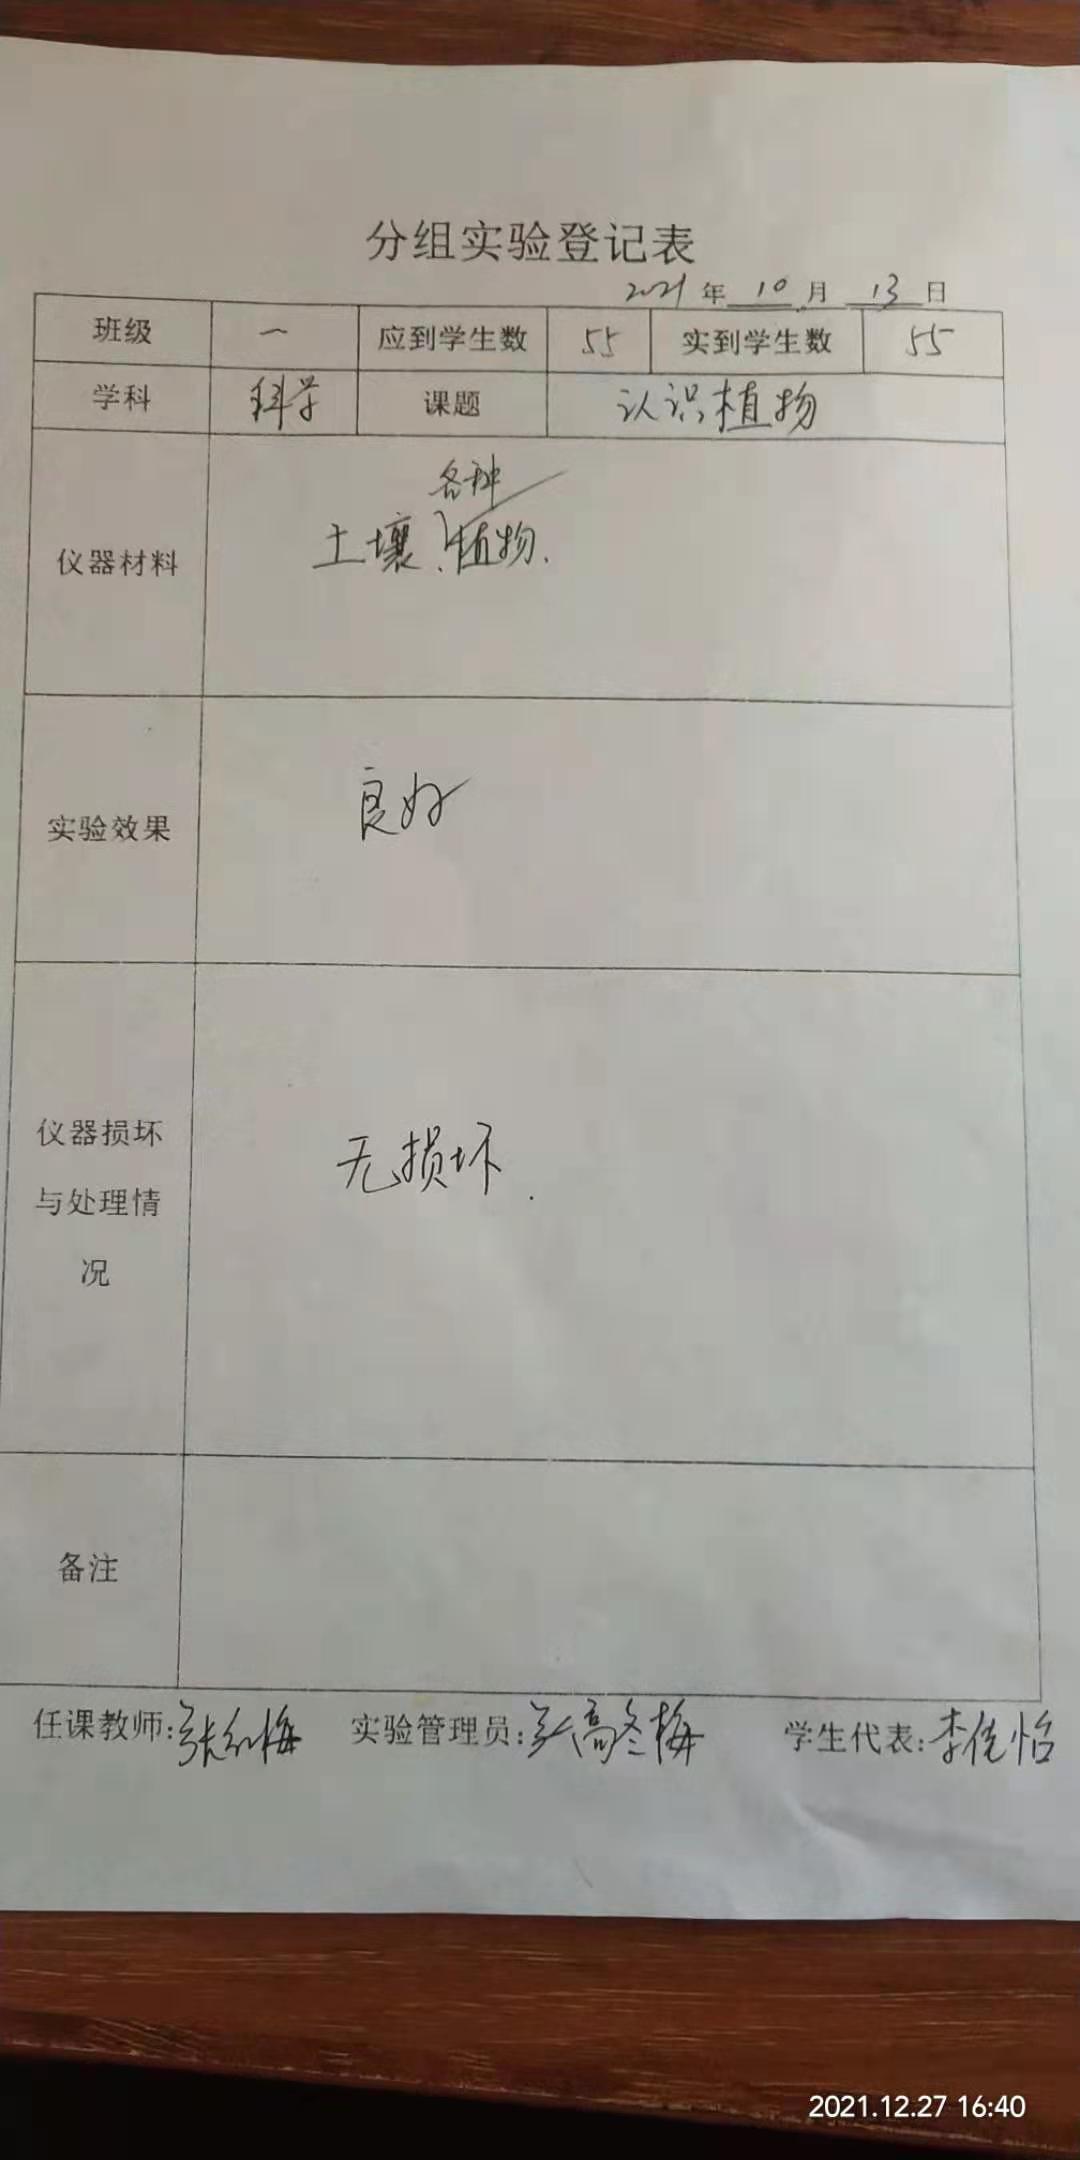 分组实验登记表
2021年 10 月 13 日
班级 一 应到学生数 55 实到学生数 55
学科 科学 课题 认识植物
各种
仪器材料 土壤、植物.
实验效果 良好
仪器损坏
与处理情
况
无损坏.
备注
任课教师:张红梅 实验管理员:高冬梅 学生代表:李佳怡
2021.12.27 16:40